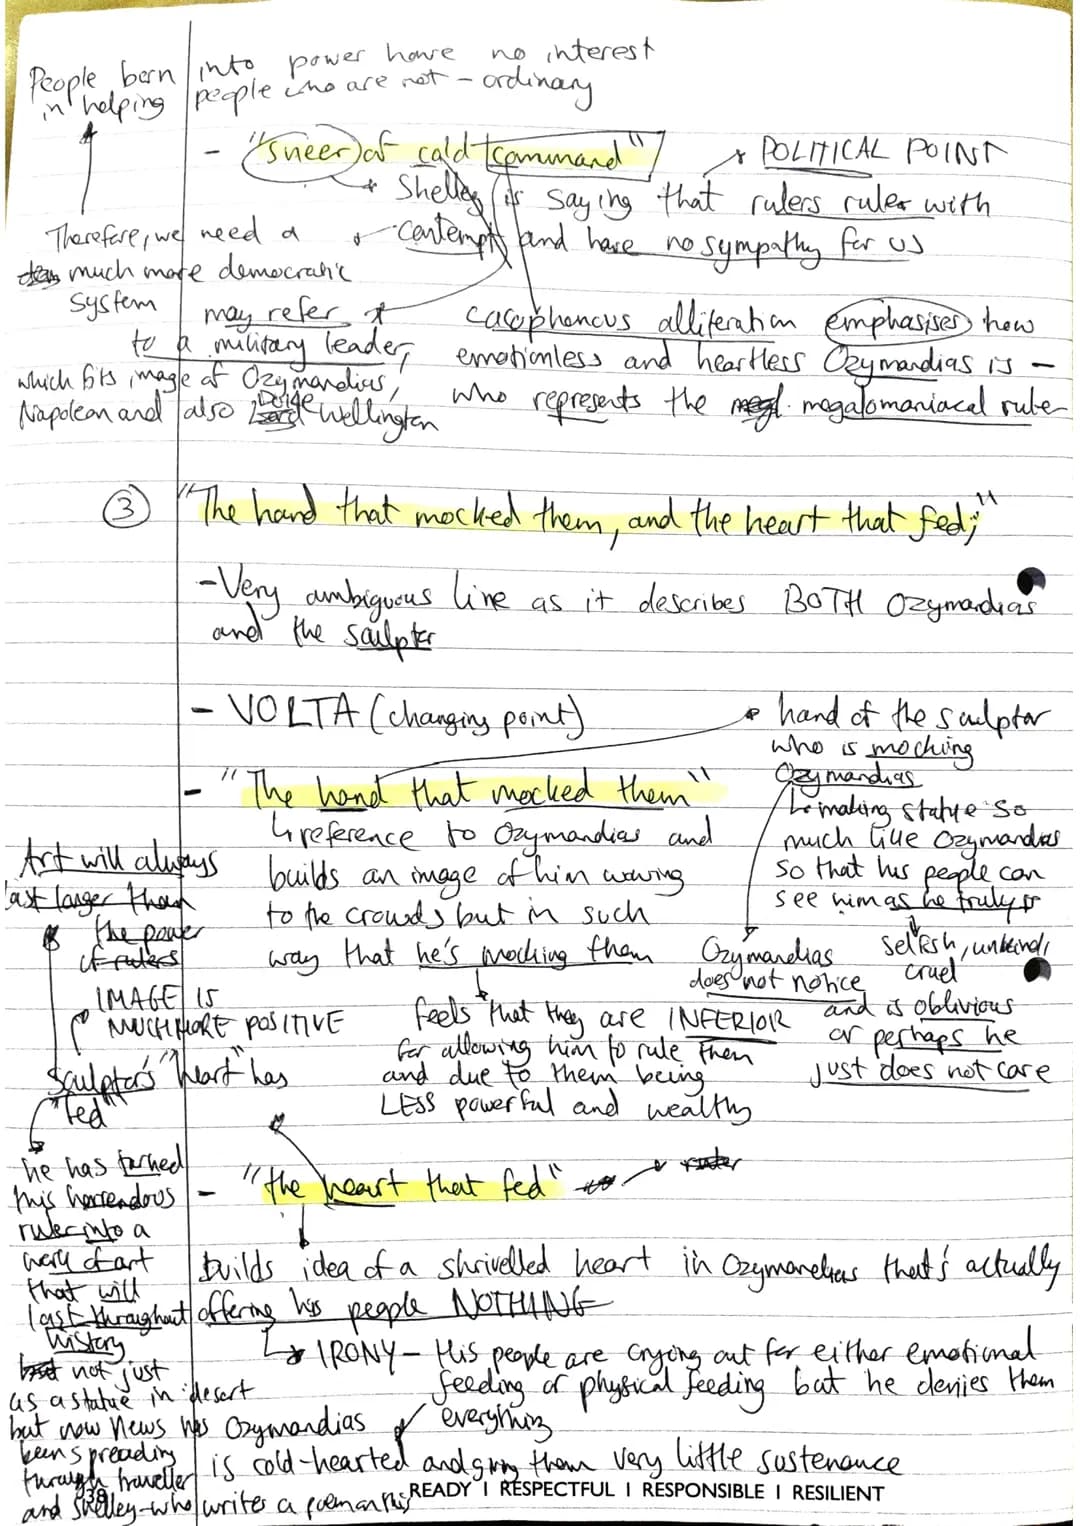 People born into power have no interest
in helping people who are not - ordinary
- "sneer of cold command"
POLITICAL POINT
Shelley is saying that rulers ruler with
contempt and have no sympathy for us
Therefore, we need a
much more democratic
system
may refer
to a military leader,
which fits image of Ozymandias,
Napolean and also Duke Wellington
cacophonous alliteration emphasises how
emotionless and heartless Ozymandias is -
who represents the megalomaniacal ruler
③ "The hand that mocked them, and the heart that fed;"
- Very ambiguous line as it describes BOTH Ozymandias
and the sculptor
- VOLTA (changing point)
- "The hand that mocked them"
↳ reference to Ozymandias and
builds an image of him waving
to the crowds but in such
way that he's mocking them
feels that they are INFERIOR
for allowing him to rule them
and due to them being
LESS powerful and wealthy
hand of the sculptor
who is mocking
Ozymandias
↳ making statue so
much like Ozymandias
so that his people can
see him as he truly is
selfish, unkind,
cruel
Ozymandias
does not notice
and is oblivious
or perhaps he
just does not care
Art will always
last longer than
the power
of rulers
IMAGE IS
MUCH MORE POSITIVE
Sculptor's "heart" has
"fed"
he has turned
this horrendous
ruler into a
work of art
that will
last throughout
history
not just
as a statue in desert
but now news has
been spreading
through traveller
and Shelley - who writes a poem on this
- "the heart that fed"
builds idea of a shrivelled heart in Ozymandias that's actually
offering his people NOTHING
↳ IRONY - His people are crying out for either emotional
feeding or physical feeding but he denies them
everything
Ozymandias
is cold-hearted and giving them very little sustenance
38
READY I RESPECTFUL I RESPONSIBLE I RESILIENT